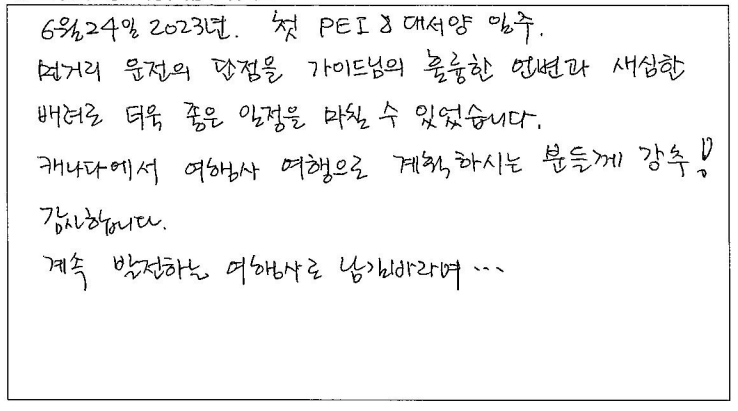 6월24일 2023년. 첫 PEI & 대서양 일주.
먼거리 운전의 단점을 가이드님의 훌륭한 언변과 새심한
배려로 더욱 좋은 일정을 마칠 수 있었습니다.
캐나다에서 여행사 여행으로 계획하시는 분들께 강추!
감사합니다.
계속 발전하는 여행사로 남길바라며...